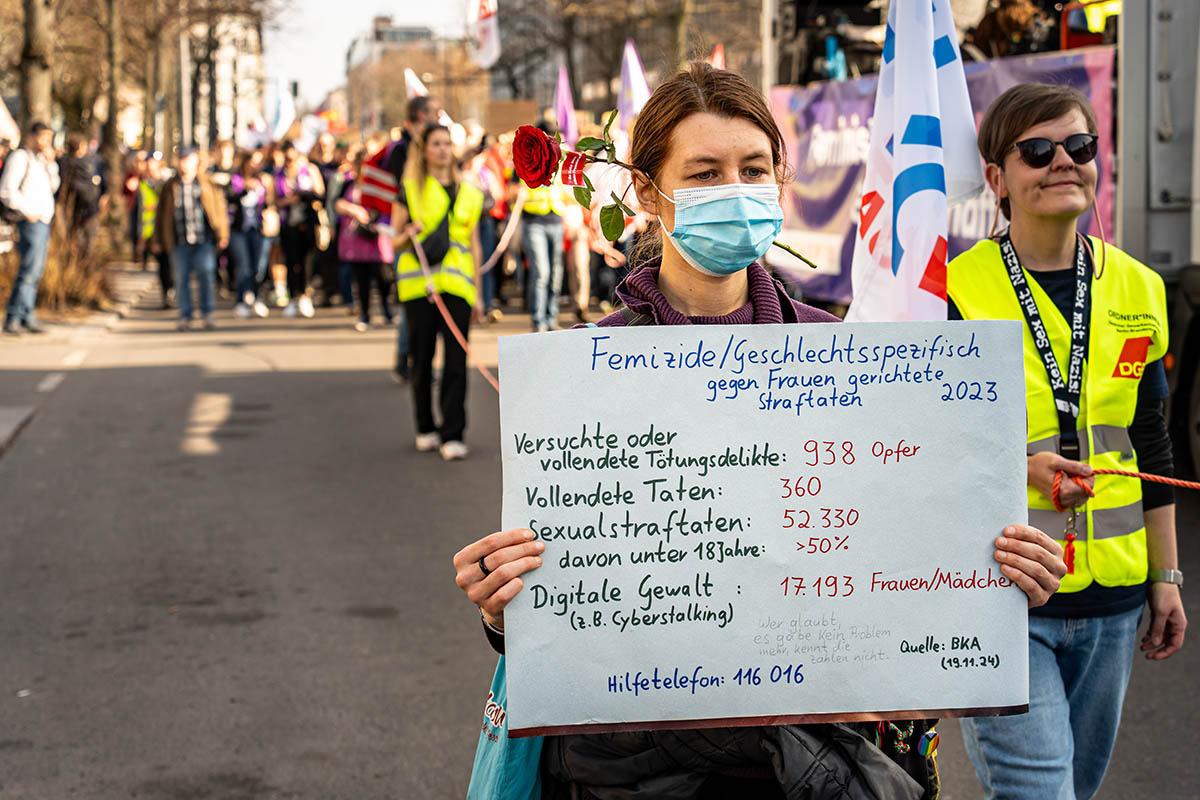 Femizide/Geschlechtsspezifisch
gegen Frauen gerichtete
Straftaten 2023
Versuchte oder
vollendete Tötungsdelikte: 938 Opfer
Vollendete Taten: 360
Sexualstraftaten: 52.330
davon unter 18 Jahre: >50%
Digitale Gewalt : 17.193 Frauen/Mädchen
(z.B. Cyberstalking)
Wer glaubt,
es gäbe kein Problem
mehr, kennt die
Zahlen nicht.
Quelle: BKA
(19.11.24)
Hilfetelefon: 116 016
Kein Sex mit Nazis!
Kein Sex mit Nazis!
ORDNER*IN
DGB